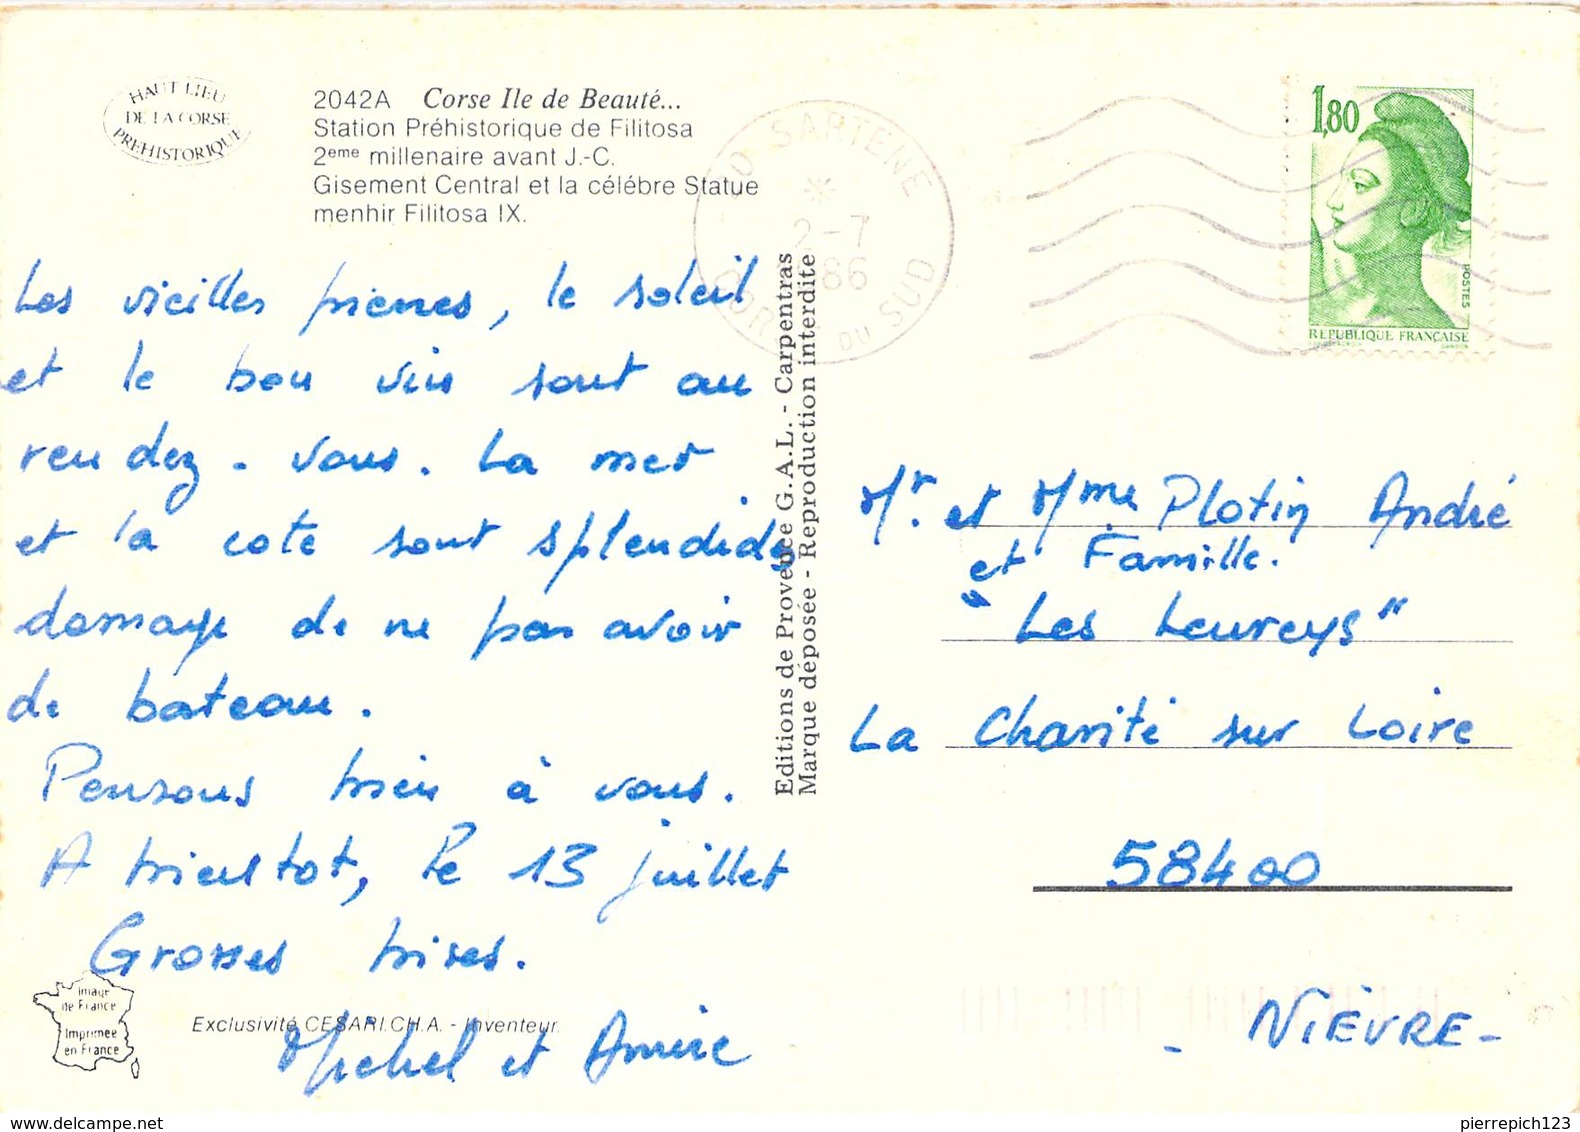 HAUT LIEU
DE LA CORSE
PREHISTORIQUE
2042A Corse Ile de Beauté...
Station Préhistorique de Filitosa
2eme millenaire avant J.-C.
Gisement Central et la célébre Statue
menhir Filitosa IX.
20 SARTENE
2-7
86
CORSE DU SUD
1,80
POSTES
REPUBLIQUE FRANÇAISE
GANDON
Les vieilles pierres, le soleil
et le bon vin sont au
rendez-vous. La mer
et la cote sont splendides
domage de ne pas avoir
de bateau.
Pensons bien à vous.
A bientot, le 13 juillet
Grosses bises.
Michel et
Editions de Provence G.A.L. - Carpentras
Marque déposée - Reproduction interdite
Mr. et Mme Plotin André
et Famille.
"Les Leureys"
La Charité sur Loire
58400
- NIÈVRE -
Image
de France
Imprimée
en France
Exclusivité CESARI.CH.A. - Inventeur.
delcampe.net
pierrepich123